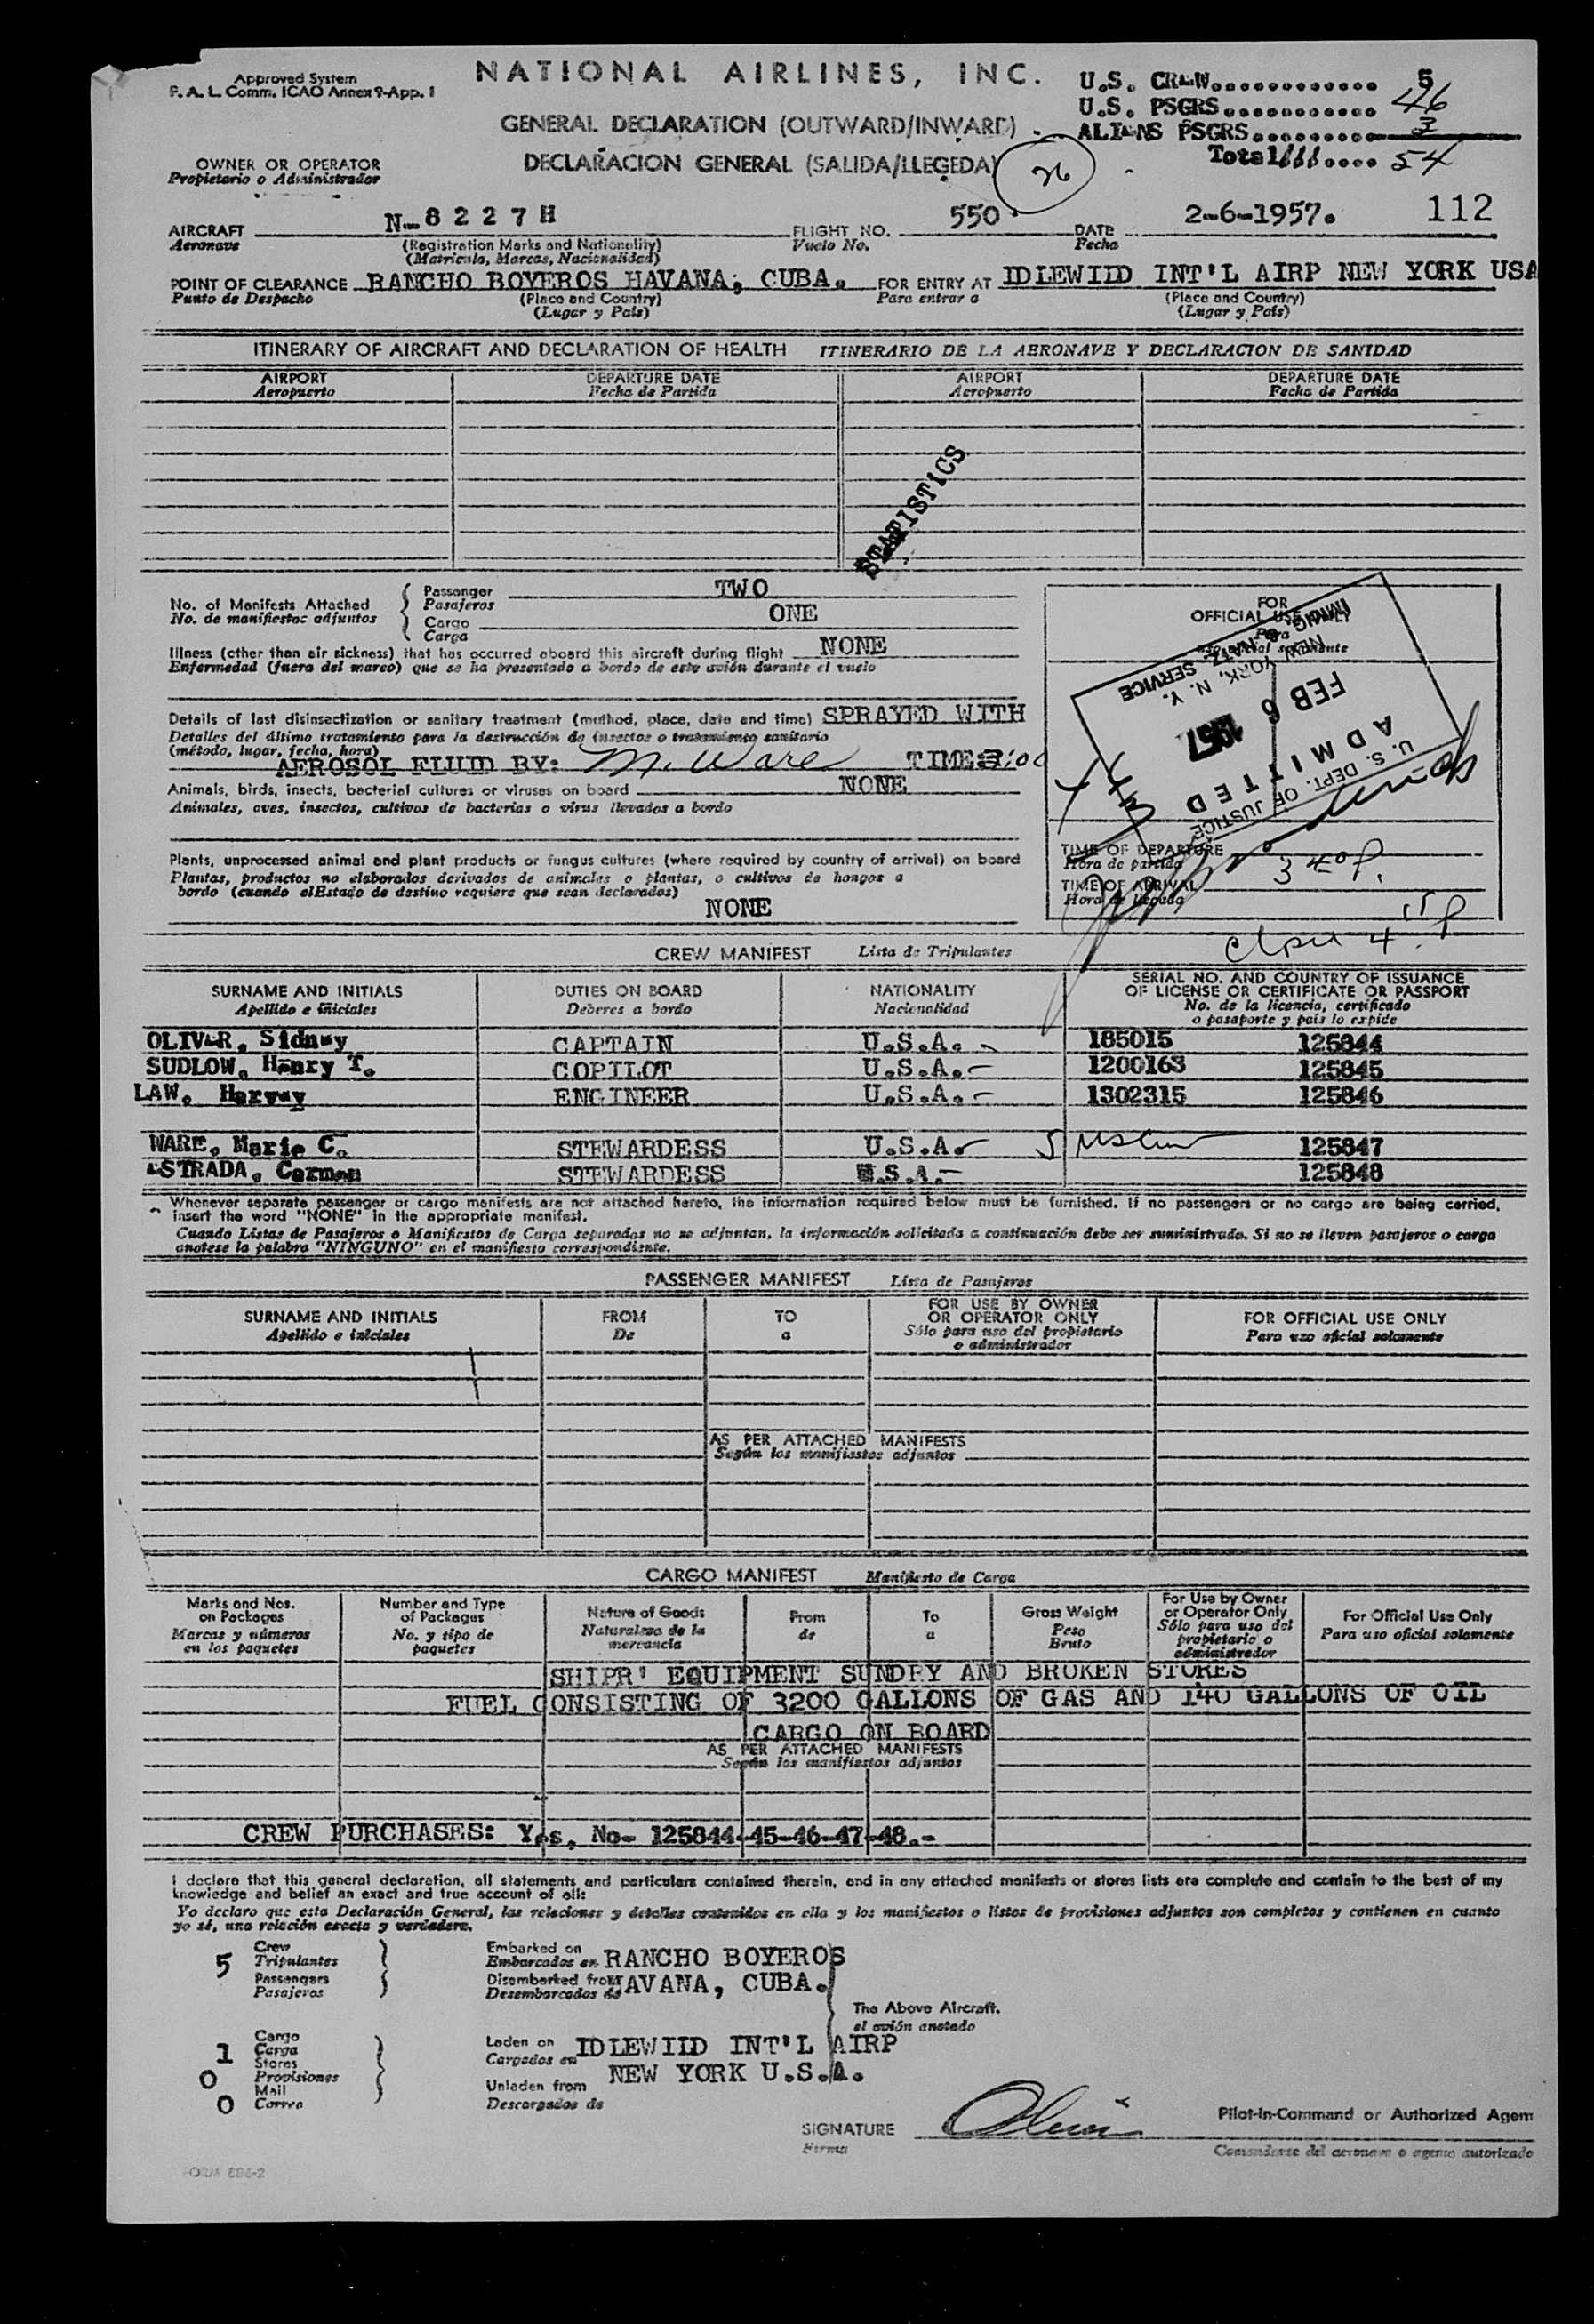 Approved System
F. A. L. Comm. ICAO Annex 9-App. 1
NATIONAL AIRLINES, INC.
U.S. CREW............ 5
U.S. PSGRS........... 46
ALIENS PSGRS......... 3
Total.... 54
GENERAL DECLARATION (OUTWARD/INWARD)
DECLARACION GENERAL (SALIDA/LLEGEDA)
26
OWNER OR OPERATOR
Propietario o Administrador
AIRCRAFT N-8227H FLIGHT NO. 550 DATE 2-6-1957. 112
Aeronave (Registration Marks and Nationality) Vuelo No. Fecha
(Matricula, Marcas, Nacionalidad)
POINT OF CLEARANCE RANCHO BOYEROS HAVANA; CUBA. FOR ENTRY AT IDLEWIID INT'L AIRP NEW YORK USA
Punto de Despacho (Place and Country) Para entrar a (Place and Country)
(Lugar y País) (Lugar y País)
ITINERARY OF AIRCRAFT AND DECLARATION OF HEALTH ITINERARIO DE LA AERONAVE Y DECLARACION DE SANIDAD
AIRPORT DEPARTURE DATE AIRPORT DEPARTURE DATE
Aeropuerto Fecha de Partida Aeropuerto Fecha de Partida
STATISTICS
No. of Manifests Attached Passenger TWO
No. de manifiestos adjuntos Pasajeros
Cargo ONE
Carga
Illness (other than air sickness) that has occurred aboard this aircraft during flight NONE
Enfermedad (fuera del mareo) que se ha presentado a bordo de este avión durante el vuelo
Details of last disinsectization or sanitary treatment (method, place, date and time) SPRAYED WITH
Detalles del último tratamiento para la destrucción de insectos o tratamiento sanitario
(método, lugar, fecha, hora)
AEROSOL FLUID BY: M. Ware TIME:
Animals, birds, insects, bacterial cultures or viruses on board NONE
Animales, aves, insectos, cultivos de bacterias o virus llevados a bordo
Plants, unprocessed animal and plant products or fungus cultures (where required by country of arrival) on board
Plantas, productos no elaborados derivados de animales o plantas, o cultivos de hongos a
bordo (cuando el Estado de destino requiere que sean declarados)
NONE
FOR
OFFICIAL USE ONLY
Para
U. S. DEPT. OF JUSTICE
ADMITTED
FEB 6 1957
NEW YORK, N. Y.
IMMIG. & NATZ. SERVICE
TIME OF DEPARTURE
Hora de partida
340P.
TIME OF ARRIVAL
Hora de llegada
CREW MANIFEST Lista de Tripulantes
SURNAME AND INITIALS DUTIES ON BOARD NATIONALITY SERIAL NO. AND COUNTRY OF ISSUANCE
OF LICENSE OR CERTIFICATE OR PASSPORT
Apellido e iniciales Deberes a bordo Nacionalidad No. de la licencia, certificado
o pasaporte y país lo expide
OLIVER, Sidney CAPTAIN U.S.A. 185015 125844
SUDLOW, Henry T. COPILOT U.S.A.- 1200163 125845
LAW, Harvey ENGINEER U.S.A.- 1302315 125846
WARE, Marie C. STEWARDESS U.S.A. 5 125847
ESTRADA, Carmen STEWARDESS U.S.A.- 125848
Whenever separate passenger or cargo manifests are not attached hereto, the information required below must be furnished. If no passengers or no cargo are being carried,
insert the word "NONE" in the appropriate manifest.
Cuando Listas de Pasajeros o Manifiestos de Carga separados no se adjuntan, la información solicitada a continuación debe ser suministrada. Si no se lleven pasajeros o carga
anotese la palabra "NINGUNO" en el manifiesto correspondiente.
PASSENGER MANIFEST Lista de Pasajeros
SURNAME AND INITIALS FROM TO FOR USE BY OWNER
OR OPERATOR ONLY FOR OFFICIAL USE ONLY
Apellido e iniciales De a Sólo para uso del propietario
o administrador Para uso oficial solamente
AS PER ATTACHED MANIFESTS
Según los manifiestos adjuntos
CARGO MANIFEST Manifiesto de Carga
Marks and Nos.
on Packages
Marcas y números
en los paquetes
Number and Type
of Packages
No. y tipo de
paquetes
Nature of Goods
Naturaleza de la
mercancia
From
de
To
a
Gross Weight
Peso
Bruto
For Use by Owner
or Operator Only
Sólo para uso del
propietario o
administrador
For Official Use Only
Para uso oficial solamente
SHIPR' EQUIPMENT SUNDRY AND BROKEN STORES
FUEL CONSISTING OF 3200 GALLONS OF GAS AND 140 GALLONS OF OIL
CARGO ON BOARD
AS PER ATTACHED MANIFESTS
Según los manifiestos adjuntos
CREW PURCHASES: Yes, No- 125844-45-46-47-48.-
I declare that this general declaration, all statements and particulars contained therein, and in any attached manifests or stores lists are complete and contain to the best of my
knowledge and belief an exact and true account of all:
Yo declaro que esta Declaración General, las relaciones y detalles contenidos en ella y los manifiestos o listos de provisiones adjuntos son completos y contienen en cuanto
yo sé, una relación exacta y verdadera.
5 Crew
Tripulantes
Passengers
Pasajeros
Embarked on
Embarcados en RANCHO BOYEROS
Disembarked from HAVANA, CUBA.
Desembarcados de
The Above Aircraft.
el avión anotado
Cargo
1 Carga
Stores
0 Provisiones
Mail
0 Correo
Laden on IDLEWIID INT'L AIRP
Cargados en
NEW YORK U.S.A.
Unladen from
Descargados de
SIGNATURE Oliver Pilot-in-Command or Authorized Agem
Firma Comandante del aeronave o agente autorizado
FORM EB6-2